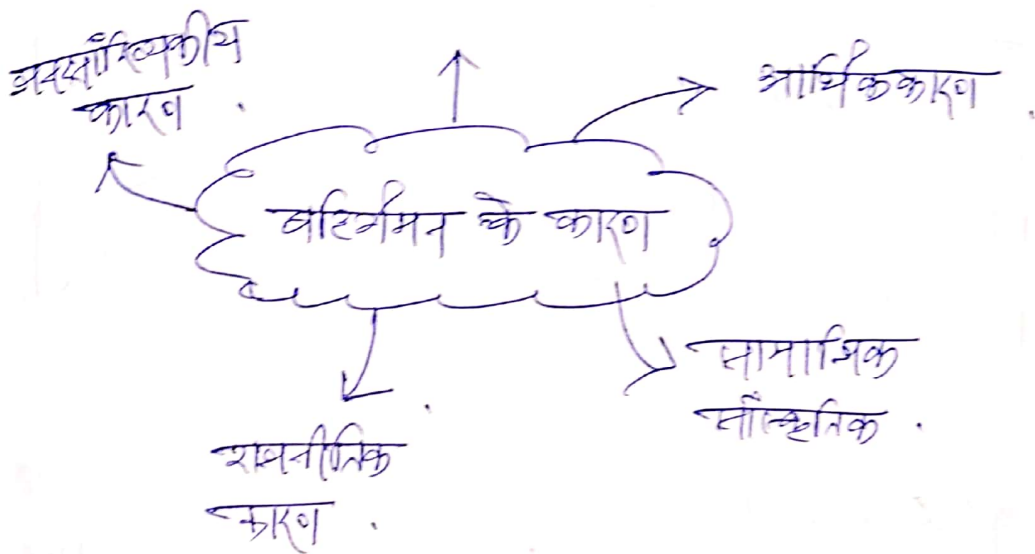 जनसाँख्यिकीय
कारण .
आर्थिक कारण .
बहिर्गमन के कारण
सामाजिक
साँस्कृतिक .
राजनीतिक
कारण .